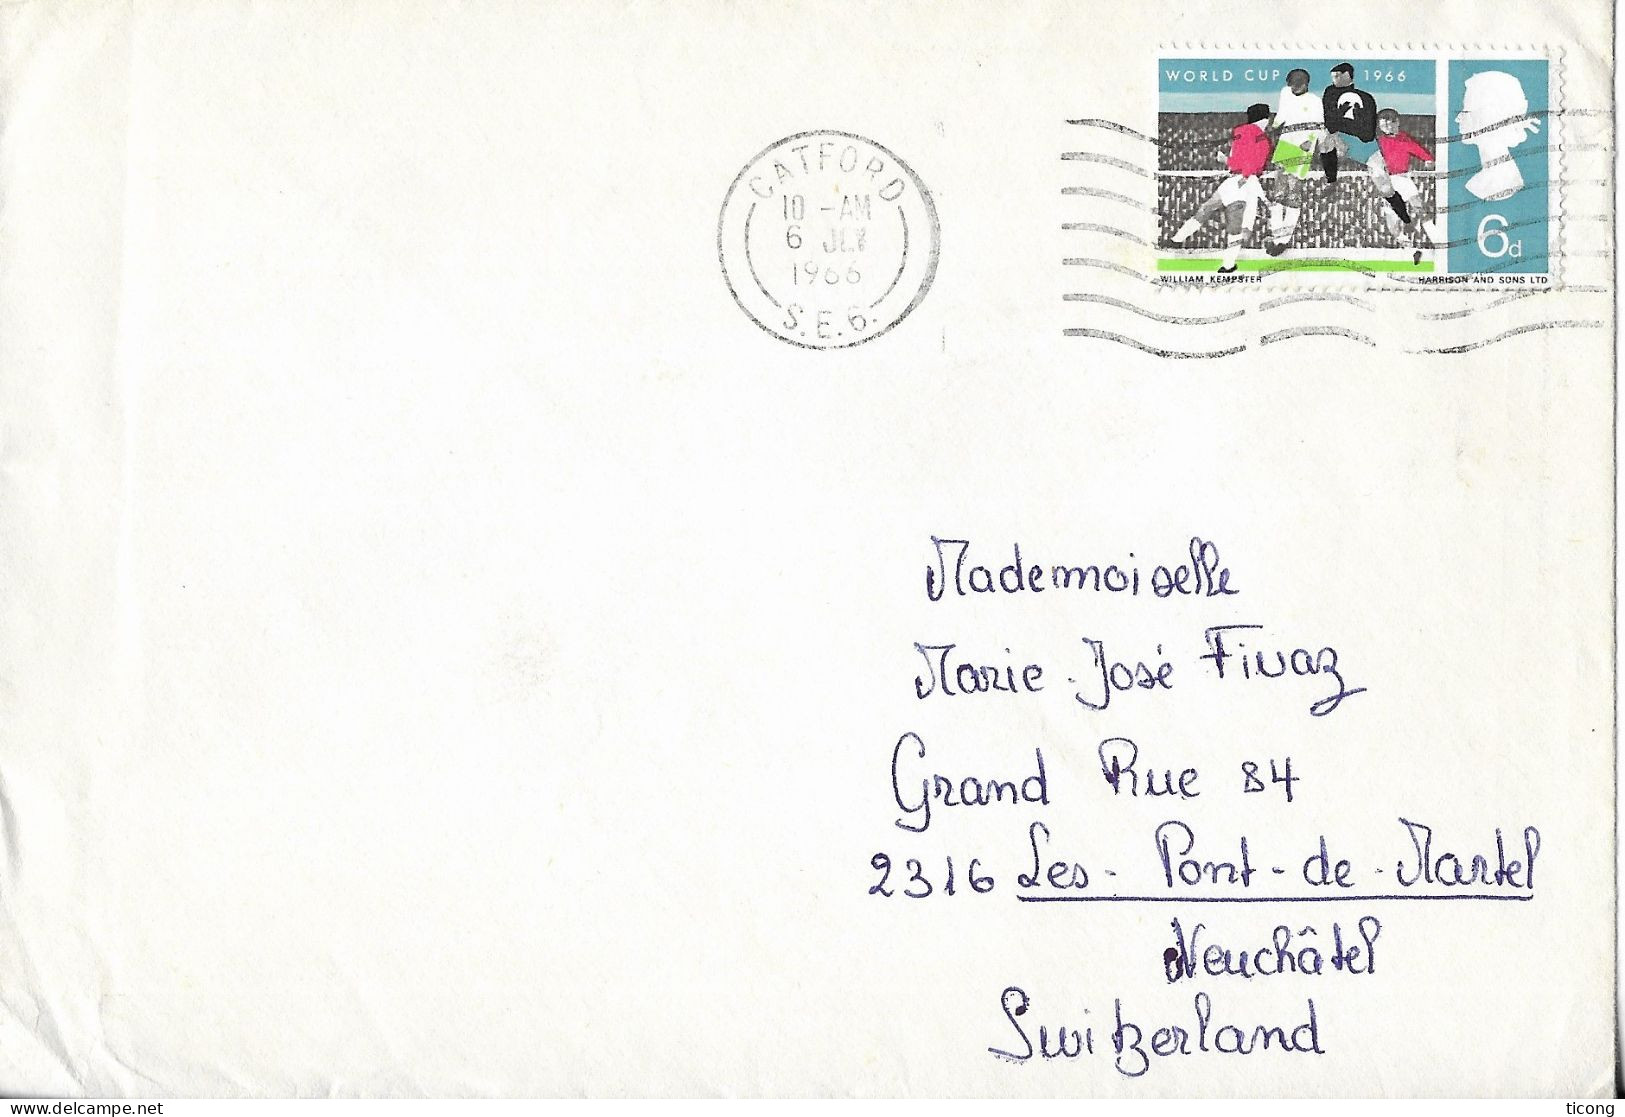 WORLD CUP 1966
6d
WILLIAM KEMPSTER HARRISON AND SONS LTD
CATFORD
10 - AM
6 JLY
1966
S.E.6.
Mademoiselle
Marie-José Fivaz
Grand Rue 84
2316 Les-Pont-de-Martel
Neuchâtel
Switzerland
delcampe.net
ticong